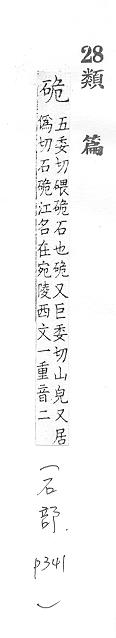 28
類篇
硊
五委切碨硊石也硊又巨委切山皃又居
爲切石硊江名在宛陵西文一重音二
(石部.
p341
)